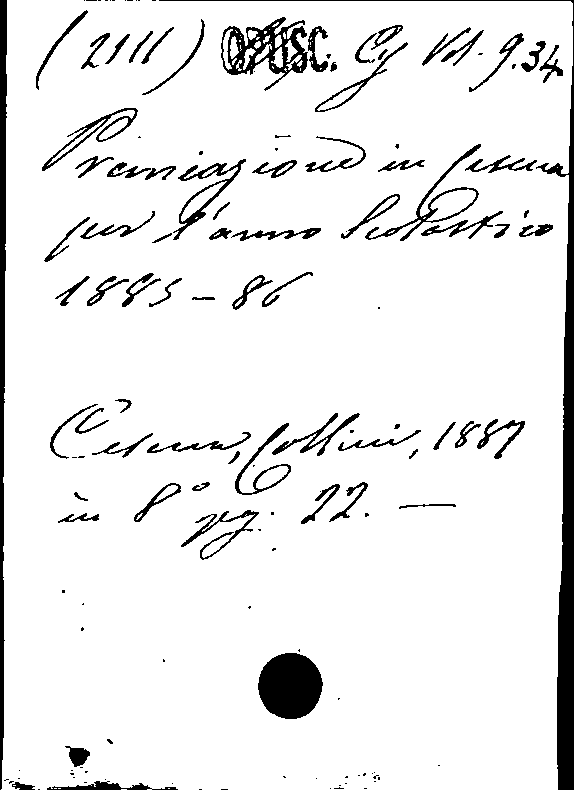 (2111) OPUSC. Cg Vol. 9.34
Premiazione in Cesena
per l'anno Scolastico
1885-86
Cesena, Collini, 1887
in 8° pg. 22. —